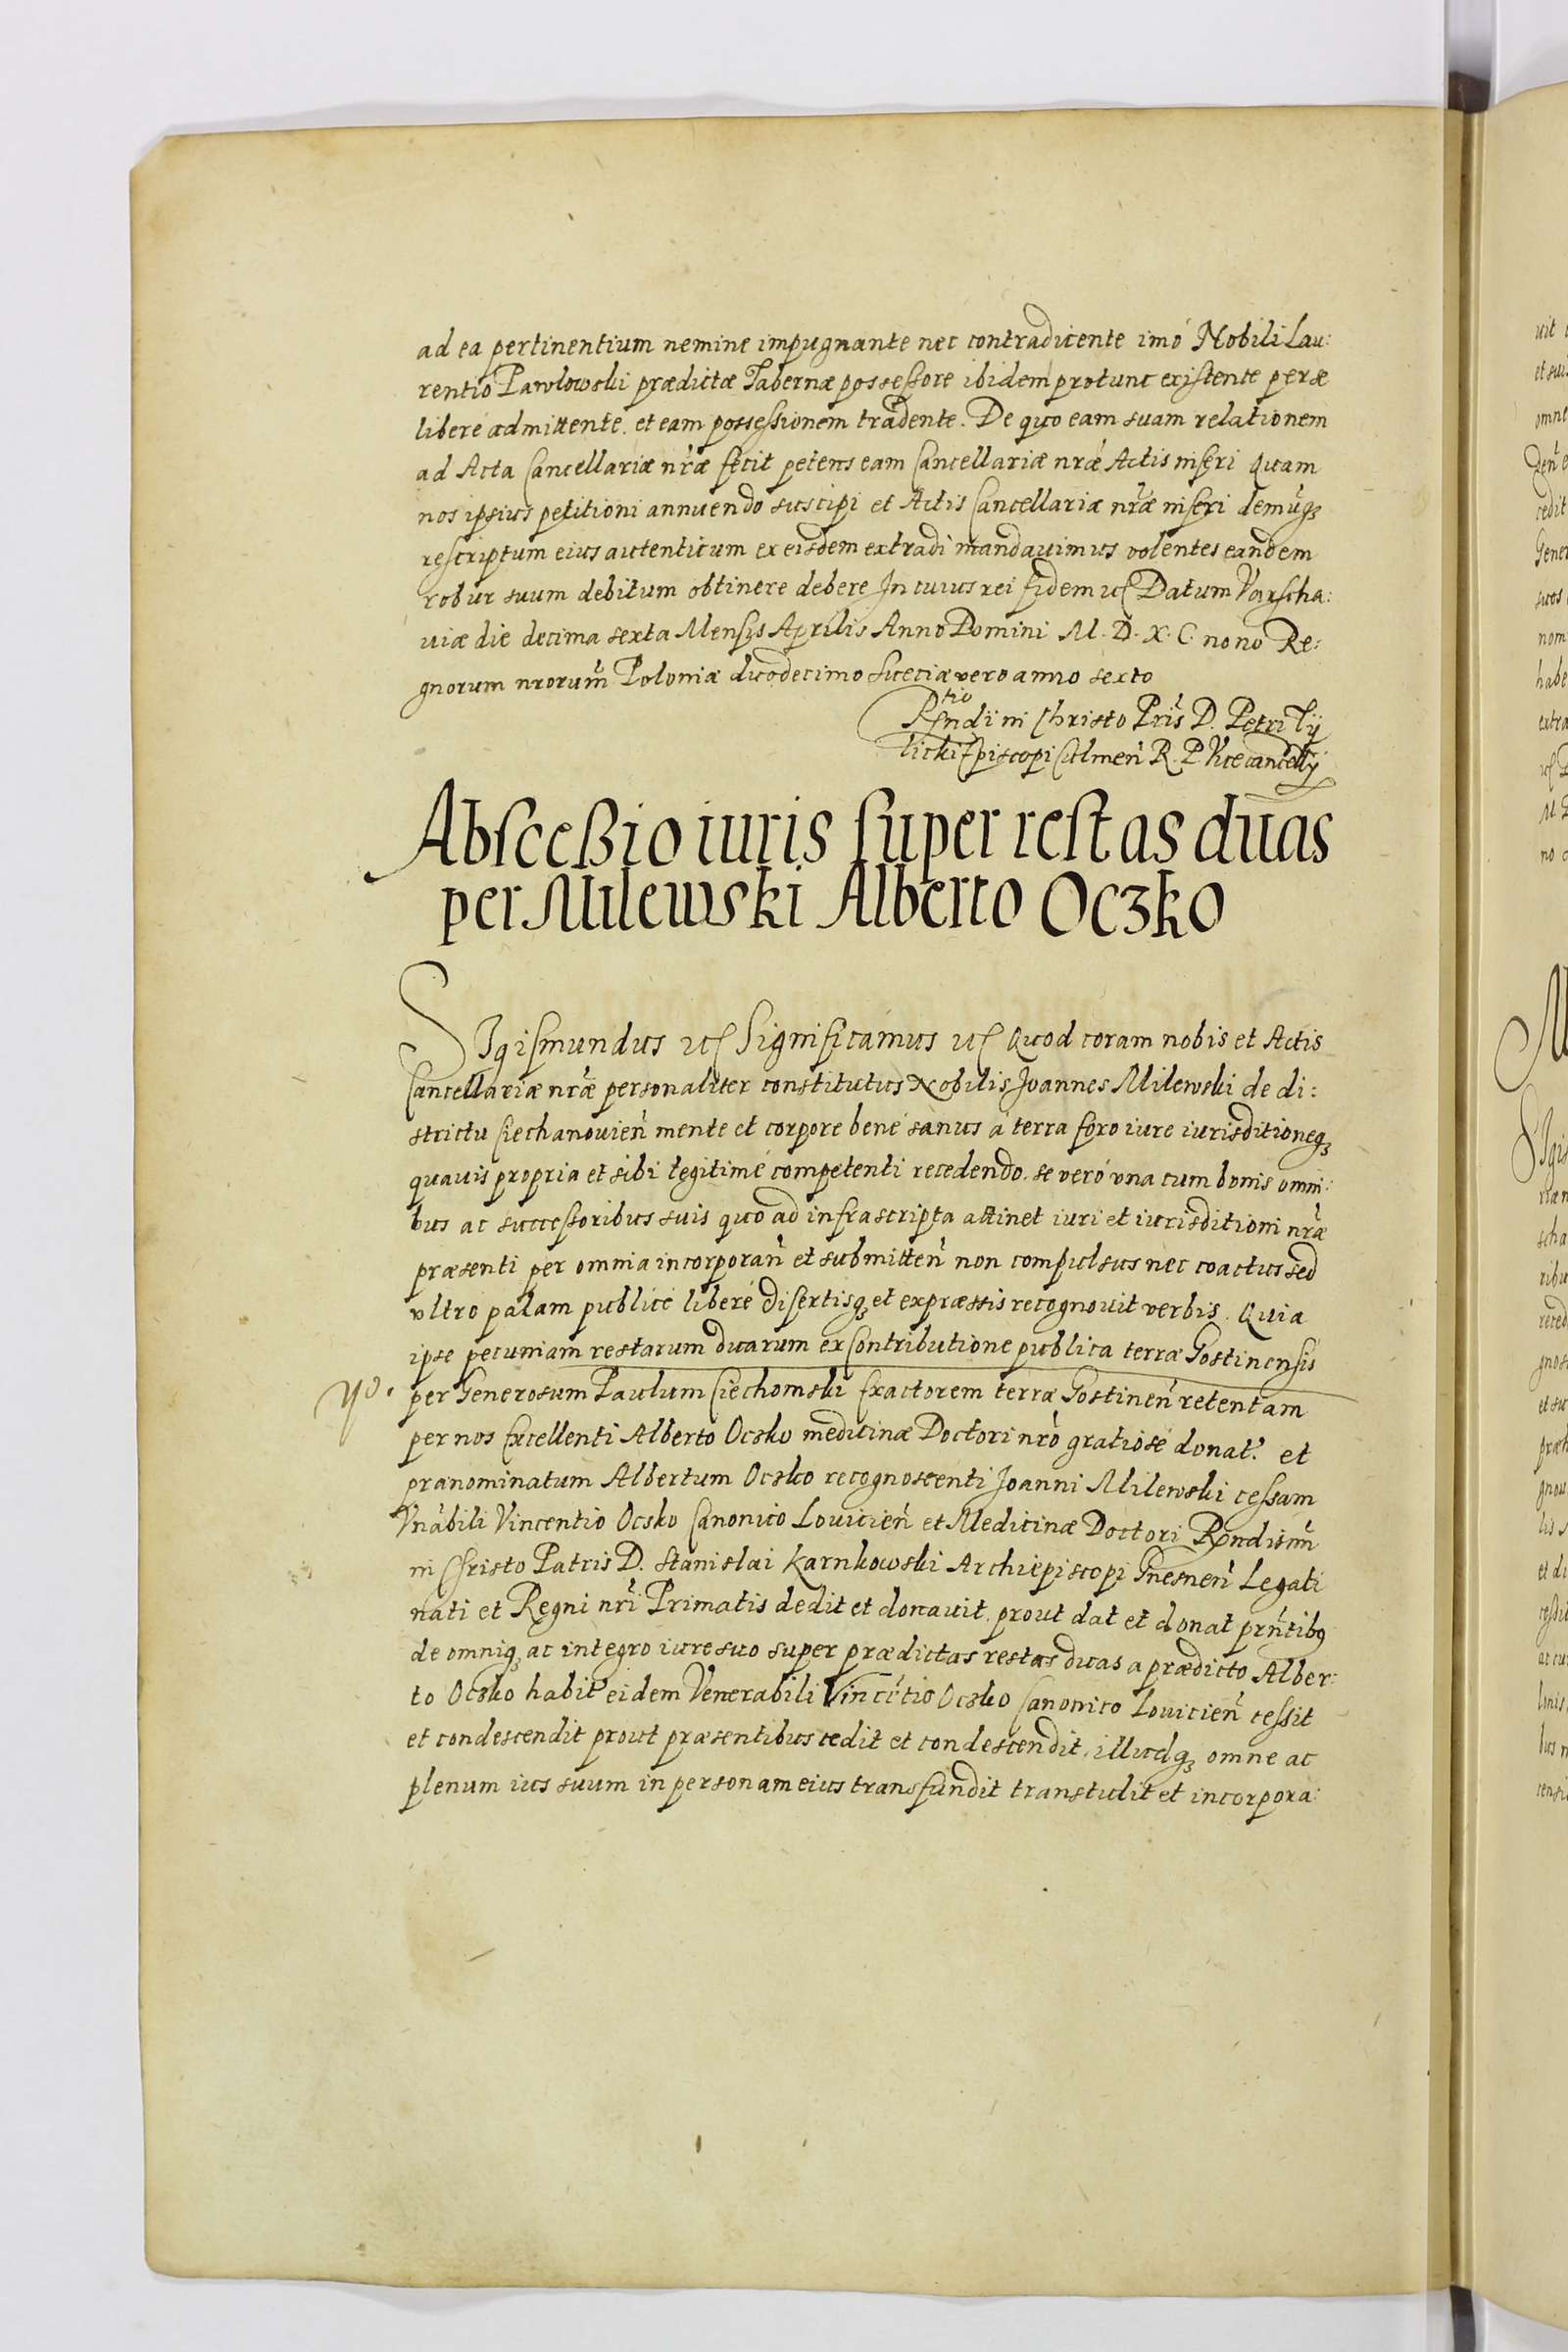 ad ea pertinentium nemine impugnante nec contradicente imó Nobili Lau:
rentio Pawlowski prædictæ Tabernæ possessore ibidem protunc existente per se
liberè admittente. et eam possessionem tradente. De quo eam suam relationem
ad Acta Cancellariæ nr̃æ fecit petens eam Cancellariæ nræ Actis inseri Quam
nos ipsius petitioni annuendo suscipi et Actis Cancellariæ nr̃æ inseri demũqꝫ
rescriptum eius autenticum ex eisdem extradi mandauimus volentes eandem
robur suum debitum obtinere debere In cuius rei fidem etc Datum Varscha:
uiæ die decima sexta Mensis Aprilis Anno Domini M. D. X. C. nono Re:
gnorum nrorum̃ Poloniæ duodecimo Sueciæ vero anno sexto
Rtio
Rsndi in Christo Prĩs D. Petri Tÿ
licki Episcopi Culmeñ R. P. Vicecancellÿ
Absceßio iuris super restas duas
per Milewski Alberto Oczko
SIgismundus etc Significamus etc Quod coram nobis et Actis
Cancellariæ nr̃æ personaliter constitutus Nobilis Joannes Milewski de di:
strictu Ciechanouieñ mente et corpore bené sanus á terra foro iure iurisditioneqꝫ
quauis propria et sibi legitimé competenti recedendo. se veró vna cum bonis omni:
bus ac successoribus suis quo ad infrascripta attinet iuri et iurisditioni nr̃æ
præsenti per omnia incorporañ et submitteñ non compulsus nec coactus sed
vltro palam publicé liberé disertisqꝫ et expræssis recognouit verbis. Quia
ipse pecuniam restarum duarum ex Contributione publica terræ Gostinensis
per Generosum Paulum Ciechomski Exactorem terræ Gostineñ retentam
per nos Excellenti Alberto Ocsko medicinæ Doctori nrõ gratiosé donat. et
prænominatum Albertum Ocsko recognoscenti Joanni Milewski cessam
Vnãbili Vincentio Ocsko Canonico Louicieñ et Medicinæ Doctori Rsndissim̃
in Christo Patris D. Stanislai Karnkowski Archiepiscopi Gnesneñ Legati
nati et Regni nr̃i Primatis dedit et donauit. prout dat et donat prñtibꝫ
de omniqꝫ ac integro iure suo super prædictas restas duas a prædicto Alber:
to Ocsko habit eidem Venerabili Vincẽtio Ocsko Canonico Louicieñ cessit
et condescendit prout præsentibus cedit et condescendit. illudqꝫ omne ac
plenum ius suum in personam eius transfundit transtulit et incorpora: